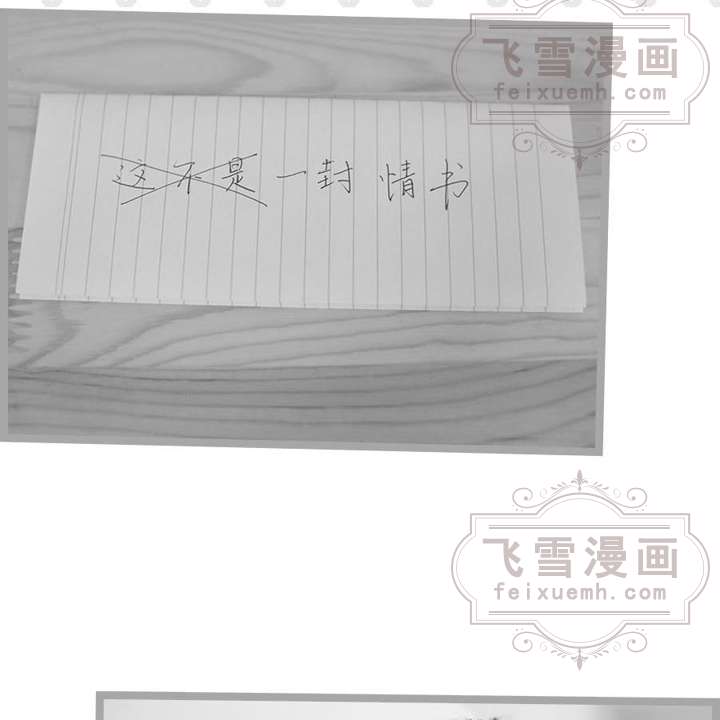 飞雪漫画
feixuemh.com
这不是一封情书
飞雪漫画
feixuemh.com